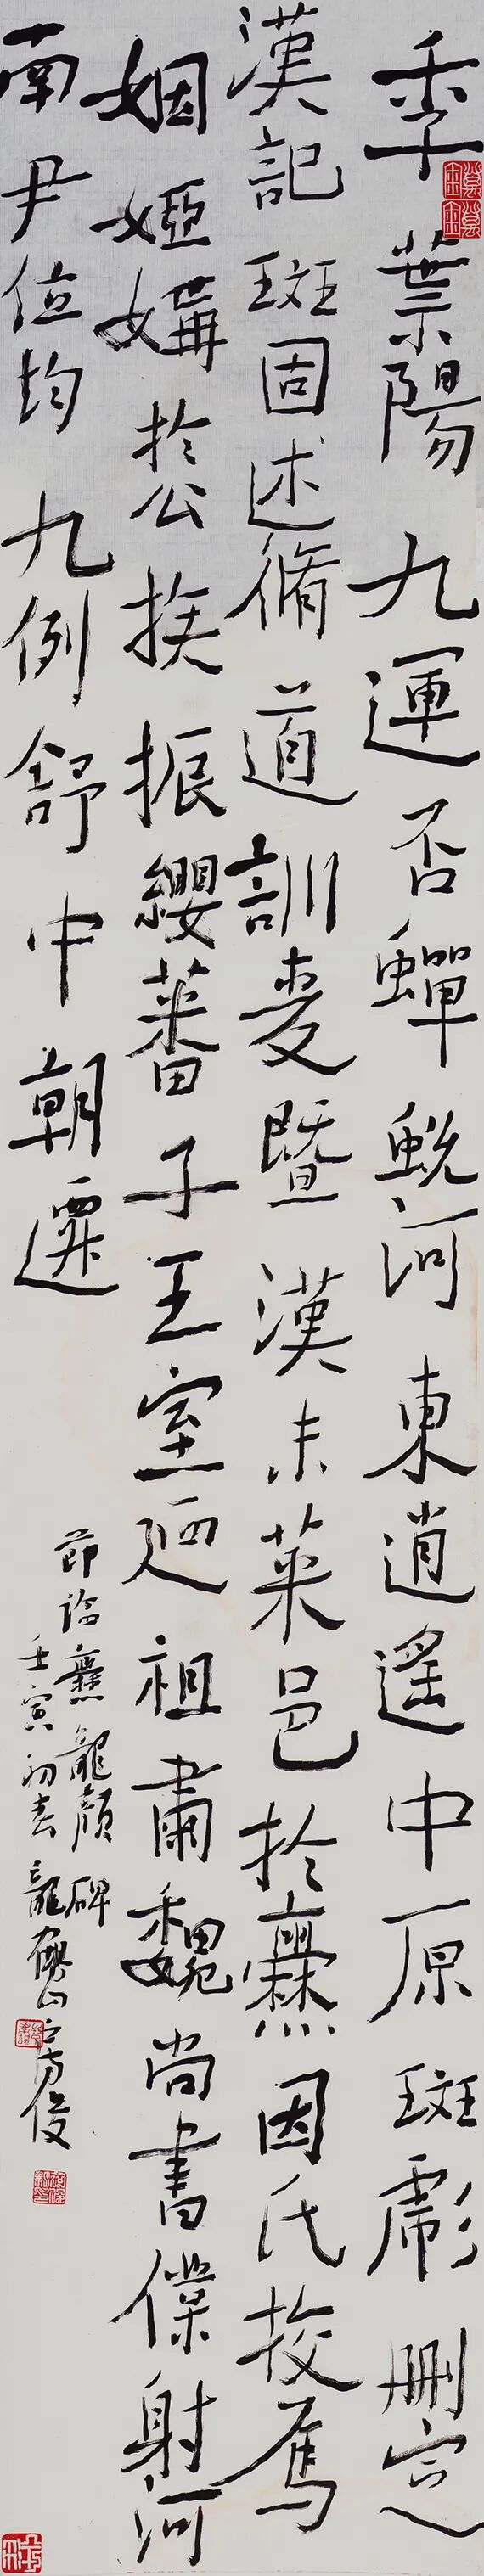 季葉陽九運否蟬蛻河東逍遙中原斑彪刪定
漢記斑固述脩道訓爰暨漢末菜邑於爨因氏族焉
姻婭媾於公族振纓蕃子王室迺祖肅魏尚書僕射河
南尹位均九例舒中朝遷
節臨爨龍顏碑
壬寅初春龍山房俊